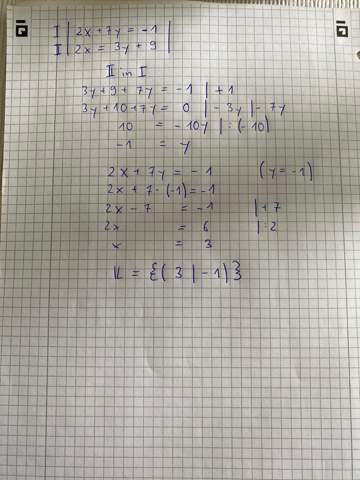 I | 2x + 7y = -1 |
II | 2x = 3y + 9 |
II in I
3y + 9 + 7y = -1 | + 1
3y + 10 + 7y = 0 | - 3y | - 7y
10 = - 10y | : (- 10)
-1 = y
2x + 7y = - 1 (y = -1)
2x + 7 · (-1) = -1
2x - 7 = -1 | + 7
2x = 6 | : 2
x = 3
𝕃 = {( 3 | -1 )}